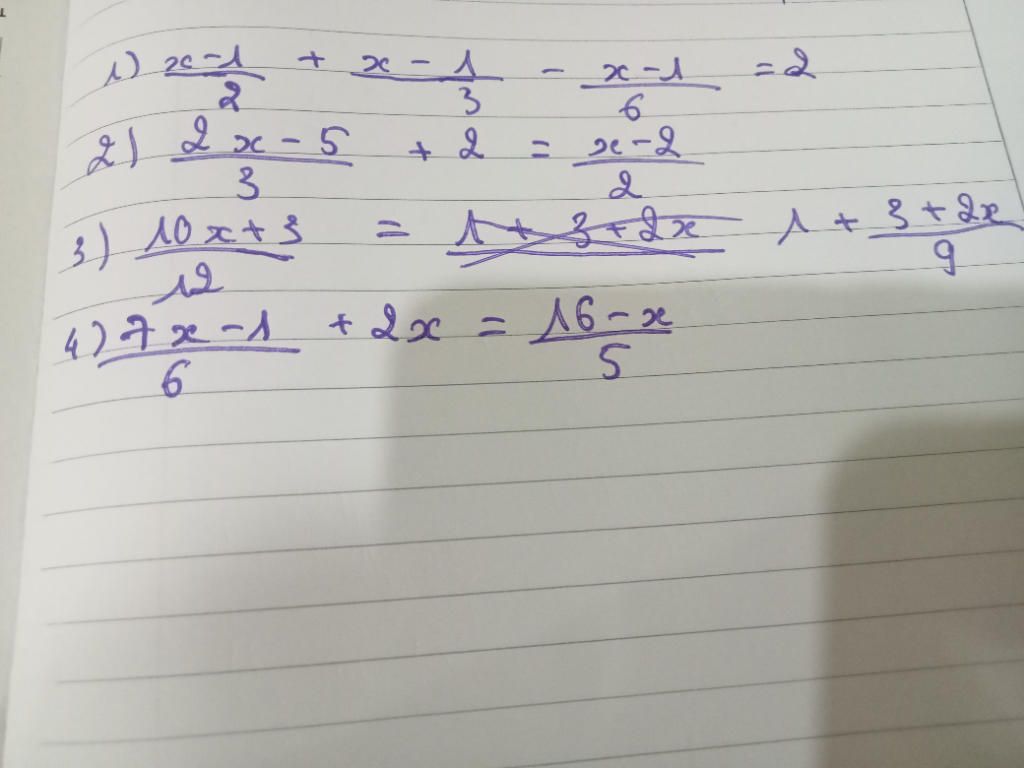 1) (x-1)/2 + (x-1)/3 - (x-1)/6 = 2
2) (2x-5)/3 + 2 = (x-2)/2
3) (10x+3)/12 = ~~1+3+2x~~ 1 + (3+2x)/9
4) (7x-1)/6 + 2x = (16-x)/5